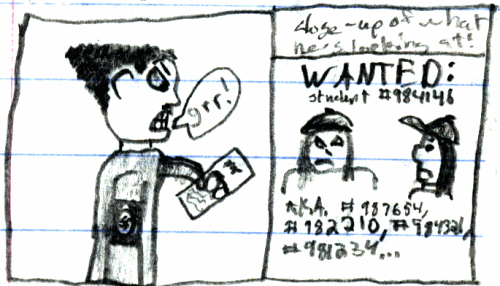 grr!
close-up of what
he's looking at!
WANTED:
student #984146
A.K.A. #987654,
#982210, #984321,
#981234...